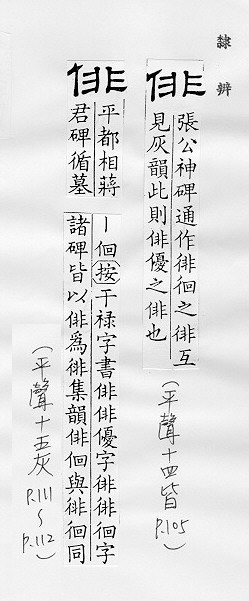 隸辨
俳
張公神碑通作徘徊之徘互
見灰韻此則俳優之俳也
(平聲十四皆
P.105)
俳
平都相蔣
君碑循墓
丨佪(按)干祿字書俳俳優字徘徘徊字
諸碑皆以俳為徘集韻俳佪與徘徊同
(平聲十五灰
P.111
~
P.112)